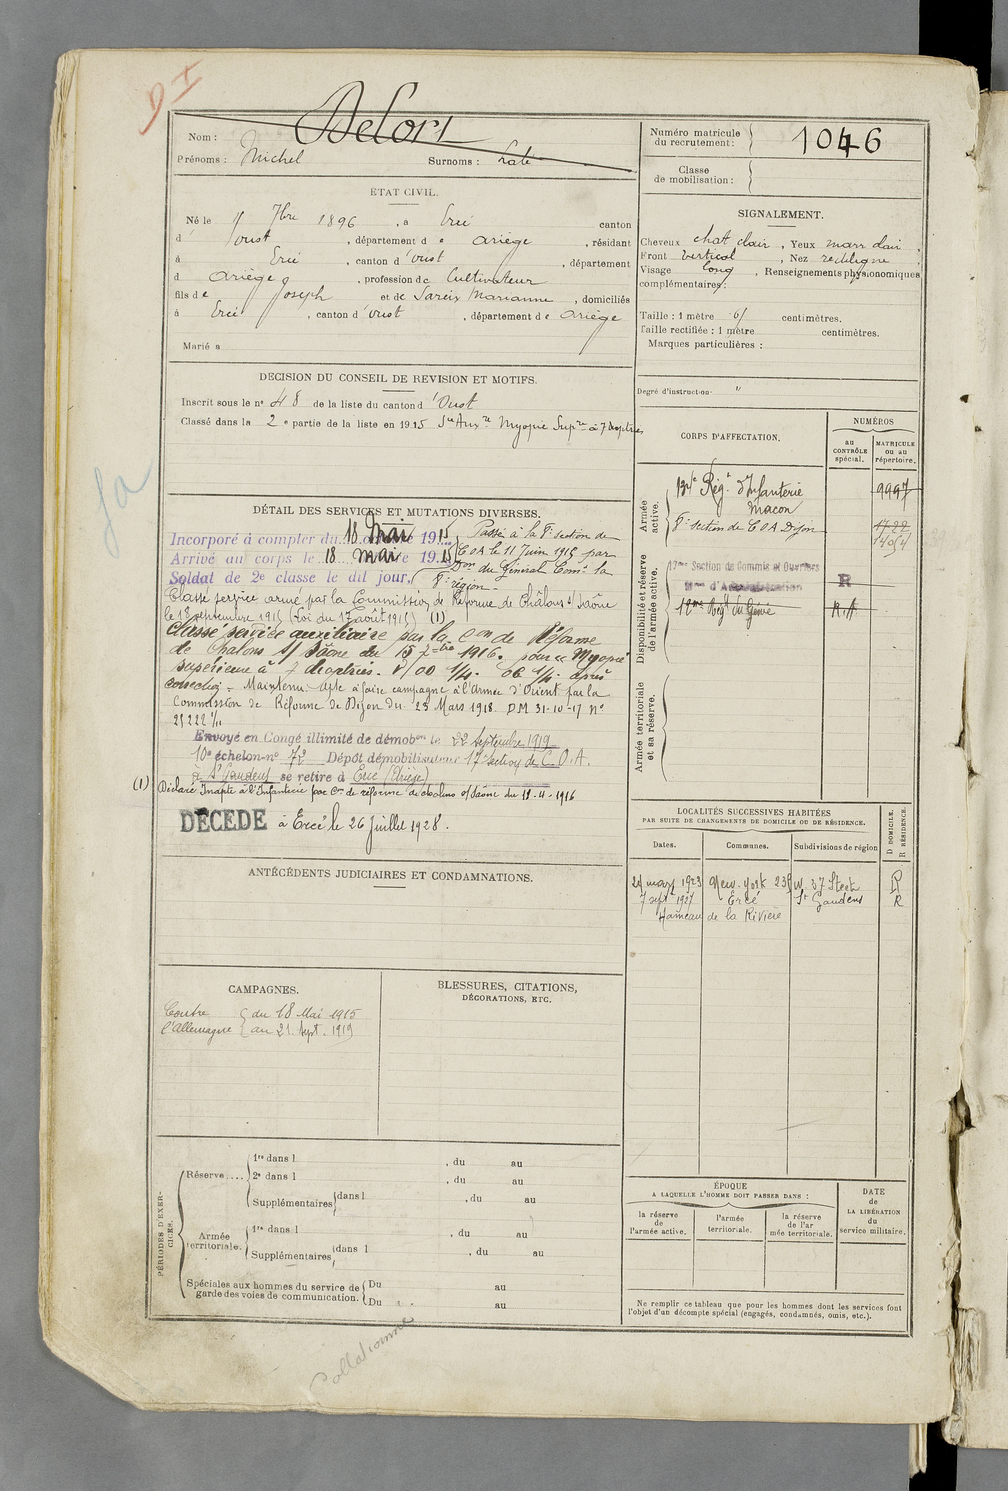 D I
Nom : Delors
Prénoms : Michel Surnoms :
Numéro matricule du recrutement : 1046
Classe de mobilisation :
ÉTAT CIVIL.
Né le 7bre 1896, à Ercé canton
d'Oust, département de Ariège, résidant
à Ercé, canton d'Oust, département
d Ariège, profession de Cultivateur
fils de Joseph et de Sareix Marianne, domiciliés
à Ercé, canton d'Oust, département de Ariège
Marié à
SIGNALEMENT.
Cheveux chat clair, Yeux marr clair,
Front vertical, Nez rectiligne
Visage long, Renseignements physionomiques
complémentaires :
Taille : 1 mètre 61 centimètres.
Taille rectifiée : 1 mètre centimètres.
Marques particulières :
Degré d'instruction "
DÉCISION DU CONSEIL DE REVISION ET MOTIFS.
Inscrit sous le n° 48 de la liste du canton d'Oust
Classé dans la 2e partie de la liste en 1915 Sce Auxre Myopie Supre à 7 dioptries
DÉTAIL DES SERVICES ET MUTATIONS DIVERSES.
Incorporé à compter du 18 Mai 1915
Arrivé au corps le 18 mai 1915
Soldat de 2e classe le dit jour.
Passé à la 8e section de
C O A le 11 Juin 1915 par
Don du Général Comt la
8e région
Classé service armé par la Commission de Réforme de Châlons s/ Saône
le 18 septembre 1915 (Loi du 17 août 1915) (1)
Classé service auxiliaire par la Con de Réforme
de Chalons s/ Saône du 15 7bre 1916. pour " Myopie
supérieure à 7 dioptries.
correction = Maintenu apte à faire campagne à l'Armée d'Orient par la
Commission de Réforme de Dijon du 23 Mars 1918. DM 31-10-17 n°
25222 1/11
Envoyé en Congé illimité de démobon le 22 septembre 1919
10e échelon n° 72 Dépôt démobilisateur 17e section de C.O.A.
à St Gaudens se retire à Ercé (Ariège)
(1) Déclaré Inapte à l'Infanterie par Con de réforme de chalons s/Saône du 12-4-1916
DÉCÉDÉ à Ercé le 26 Juillet 1928.
CORPS D'AFFECTATION.
NUMÉROS
au CONTRÔLE spécial.
MATRICULE ou au répertoire.
Armée active.
134e Régt d'Infanterie 9997
Macon
8e section de C O A Dijon
Disponibilité et réserve de l'armée active.
17me Section de Commis et Ouvriers
Mres d'Administration R
Regt du Génie R.A
Armée territoriale et sa réserve.
LOCALITÉS SUCCESSIVES HABITÉES
PAR SUITE DE CHANGEMENTS DE DOMICILE OU DE RÉSIDENCE.
Dates. Communes. Subdivisions de région
D DOMICILE. R RÉSIDENCE.
mars 1923 New-York 235 W. 37 Steet R
7 sept 1927 Ercé St Gaudens R
Hameau de la Rivière
ANTÉCÉDENTS JUDICIAIRES ET CONDAMNATIONS.
CAMPAGNES.
Contre l'Allemagne
du 18 Mai 1915
au 21 Sept. 1919
BLESSURES, CITATIONS,
DÉCORATIONS, ETC.
PÉRIODES D'EXERCICES.
Réserve.... 1re dans l , du au
2e dans l , du au
Supplémentaires dans l , du au
Armée territoriale. 1re dans l , du au
Supplémentaires dans l , du au
Spéciales aux hommes du service de garde des voies de communication. Du au
Du au
ÉPOQUE
A LAQUELLE L'HOMME DOIT PASSER DANS :
la réserve de l'armée active.
l'armée territoriale.
la réserve de l'armée territoriale.
DATE de LA LIBÉRATION du service militaire.
Ne remplir ce tableau que pour les hommes dont les services font
l'objet d'un décompte spécial (engagés, condamnés, omis, etc.).
Collationné